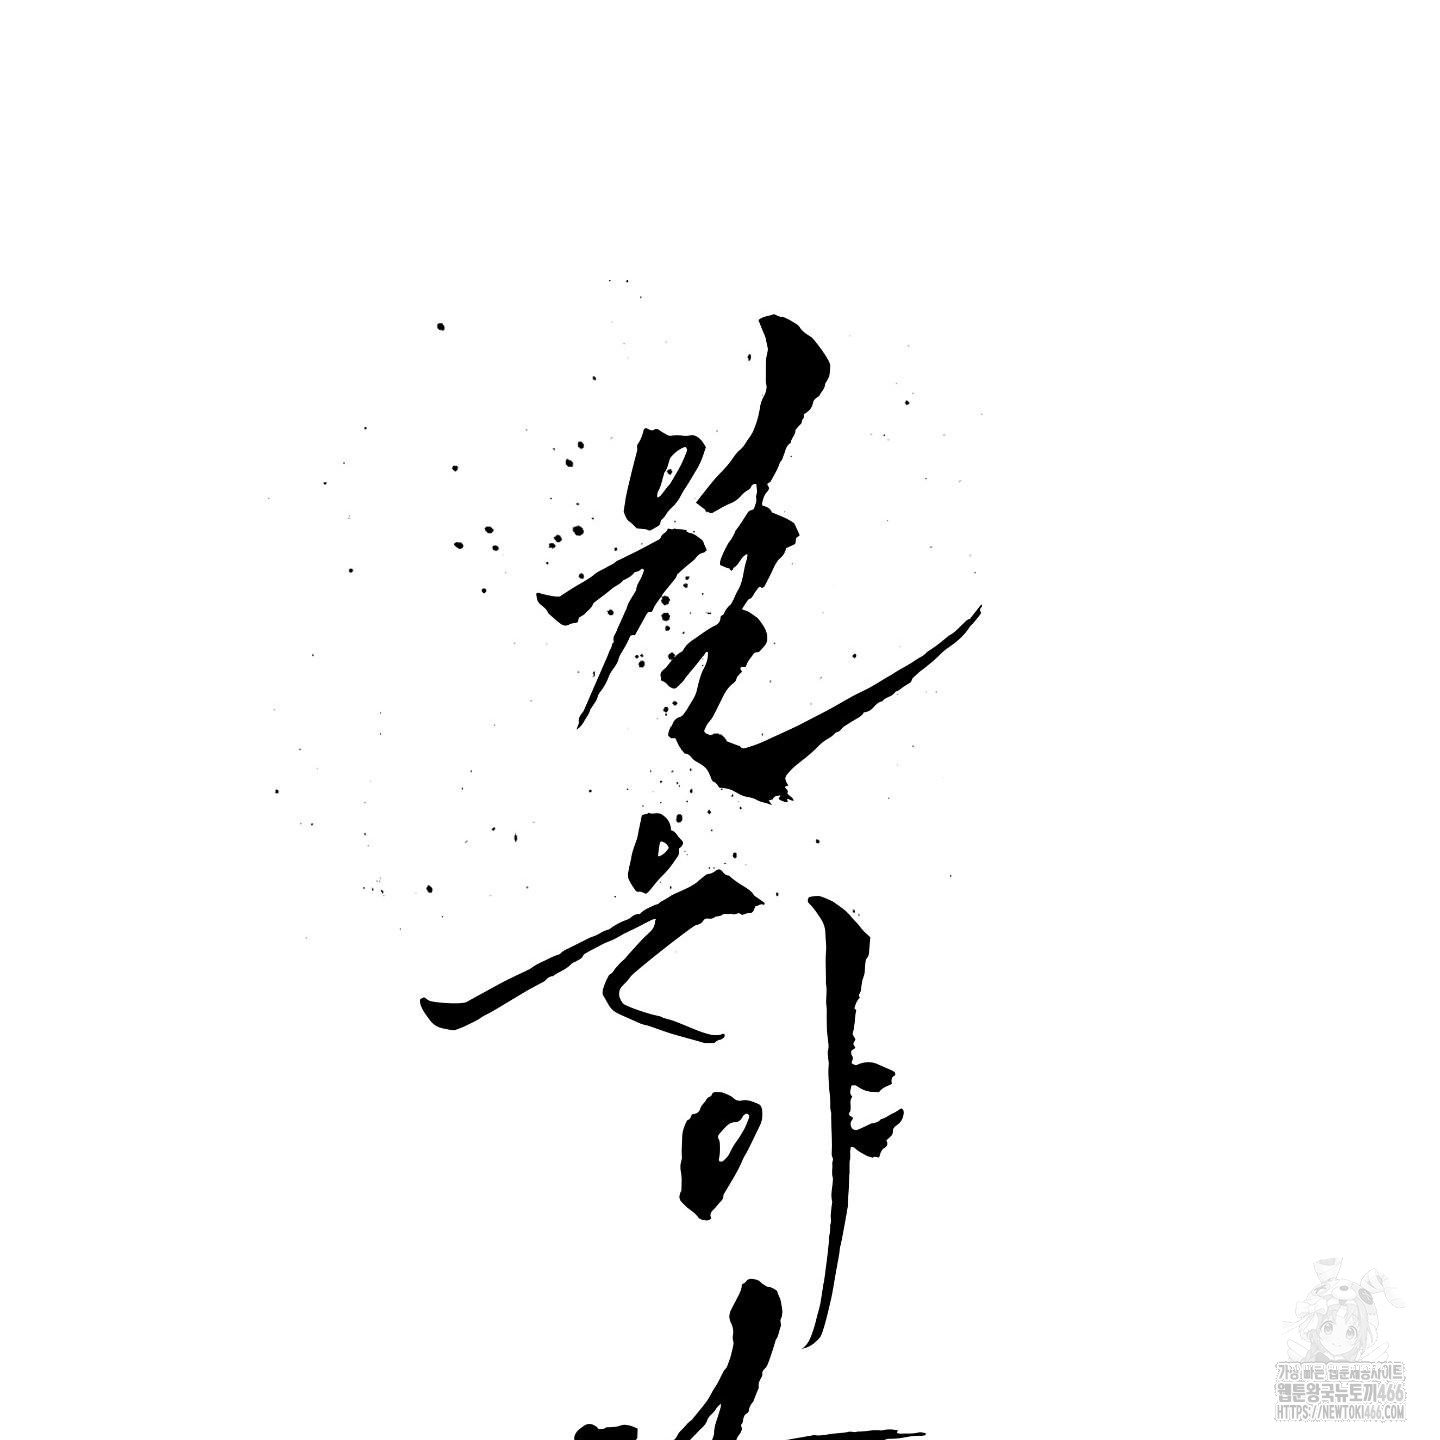 월
은
야
가장 빠른 웹툰제공사이트
웹툰왕국뉴토끼466
HTTPS://NEWTOKI466.COM